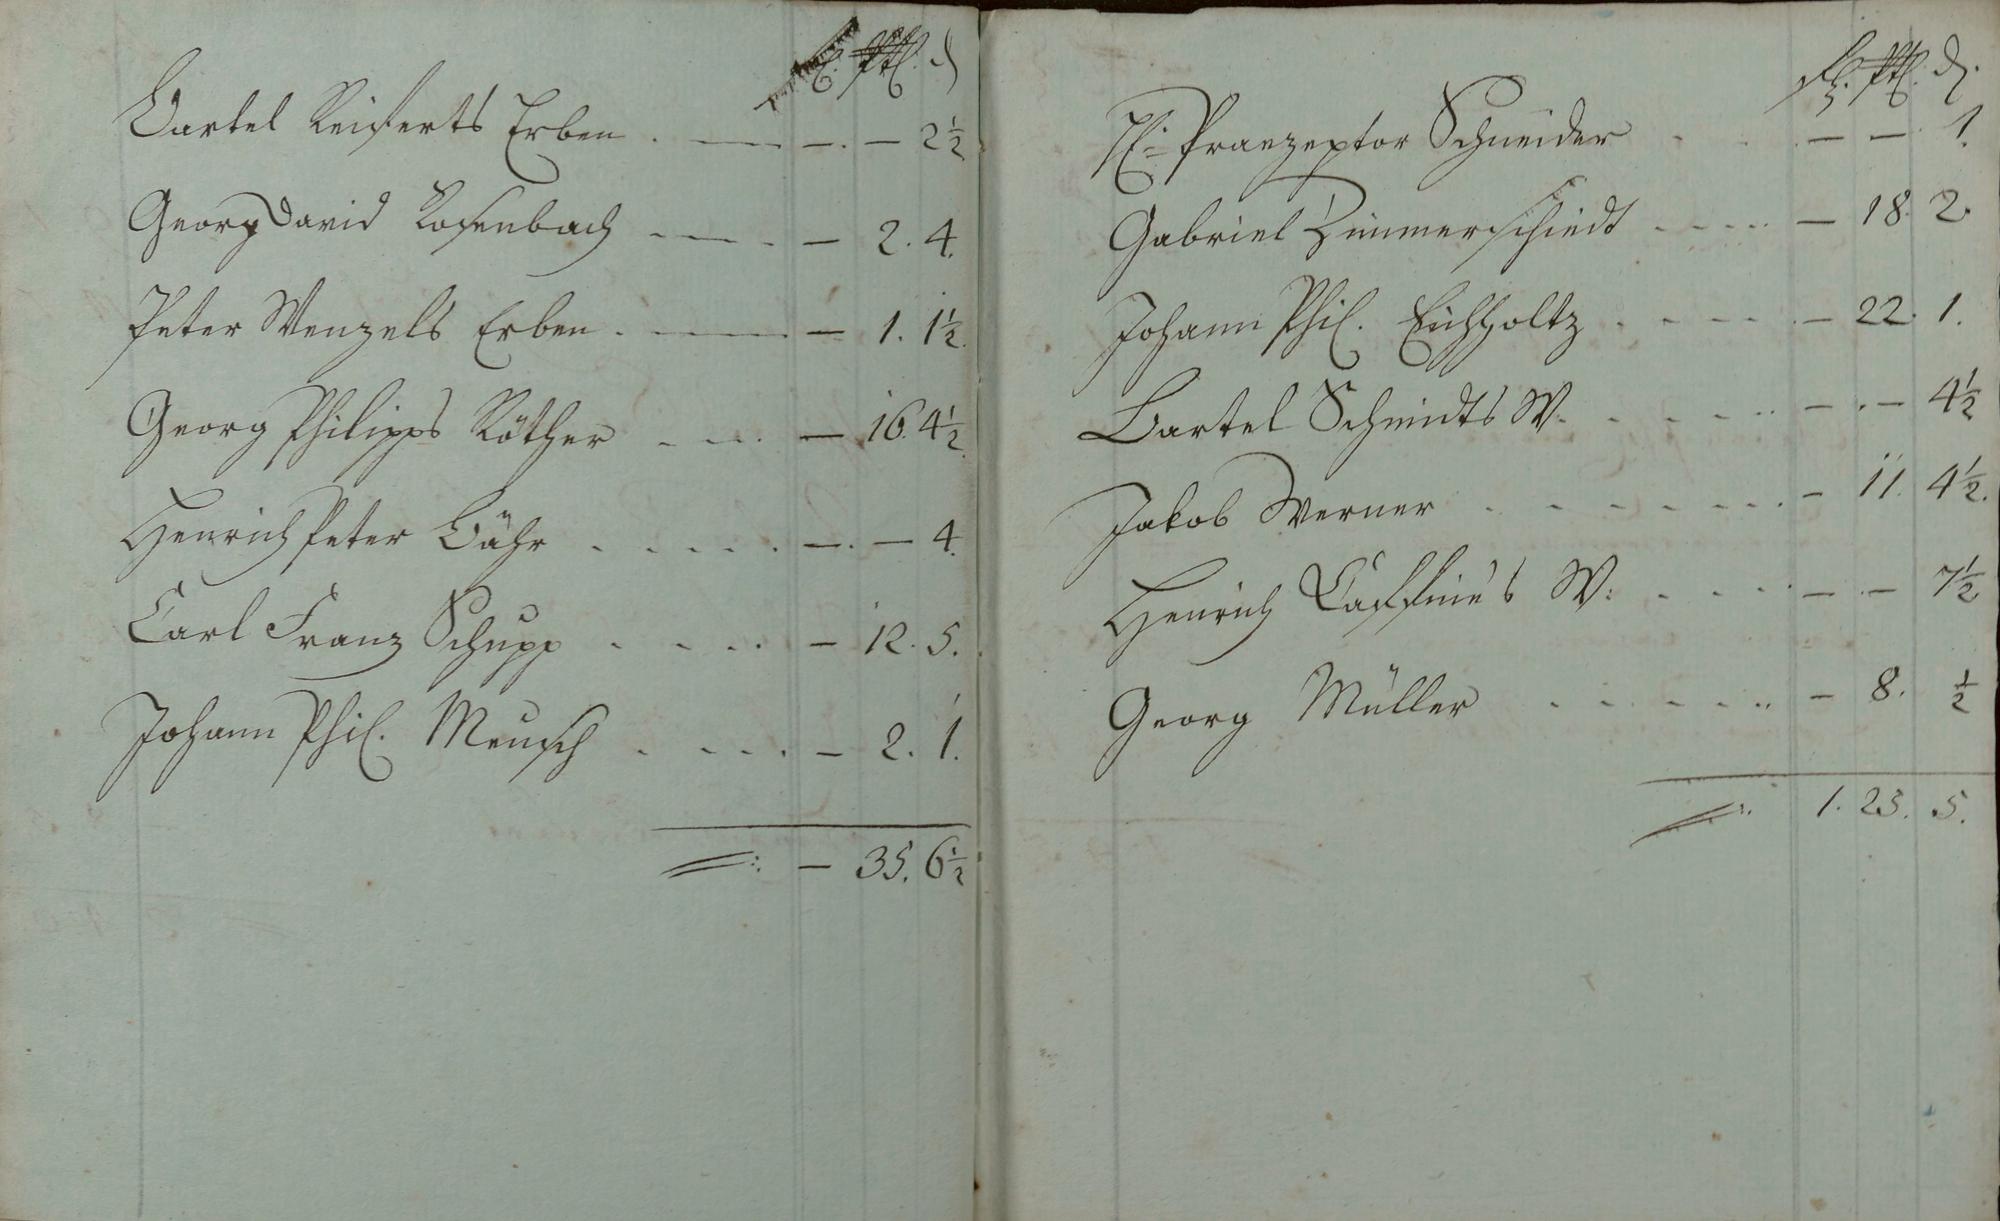 Bartel Reiferts Erben . — —. — 2½
Georg David Rosenbach — — 2. 4.
Peter Wenzels Erben . — — 1. 1½
Georg Philipps Röther — 16. 4½
Henrich Peter Bähr . . . . . —. — 4.
Carl Franz Schupp . . . . — 12. 5.
Johann Phil. Meusch . . . . — 2. 1.
— 35. 6½
H: Praezeptor Schneider . — — 1.
Gabriel Zimmerschiedt . . . . — 18. 2.
Johann Phil. Eichholtz . . . . — 22. 1.
Bartel Schmidts W. . . . . . — . — 4½
Jakob Werner . . . . . . . — 11. 4½.
Henrich W: . . . . — . — 7½
Georg Müller . . . . . . — 8. ½
1. 23. 5.